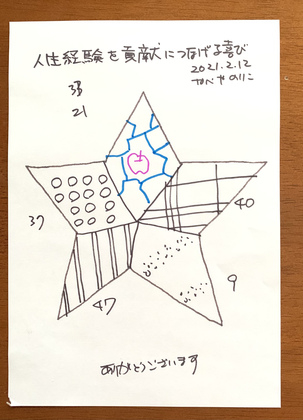 人生経験を貢献につなげる喜び
2021.2.12
なべやのりこ
38
21
37
40
47
9
ありがとうございます